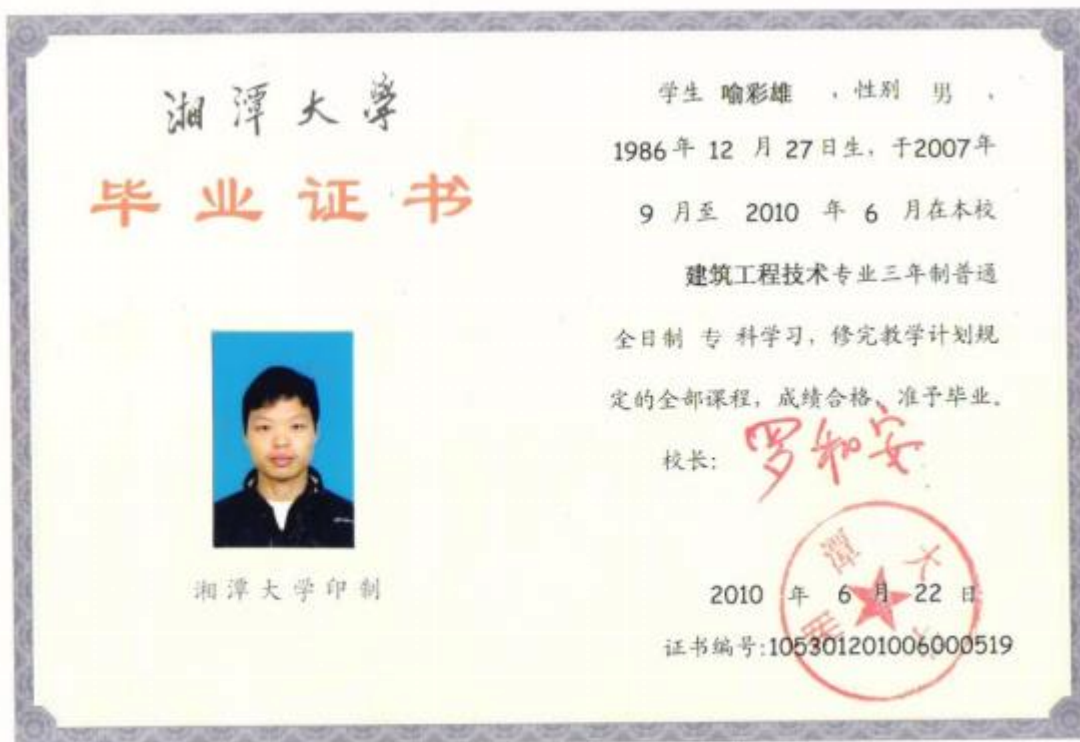 湘潭大学
毕业证书
湘潭大学印制
学生 喻彩雄 ，性别 男 ，
1986年 12 月 27日生，于2007年
9 月至 2010 年 6 月在本校
建筑工程技术专业三年制普通
全日制 专 科学习，修完教学计划规
定的全部课程，成绩合格，准予毕业。
校长：罗和安
2010 年 6 月 22 日
证书编号:105301201006000519
湘潭大学